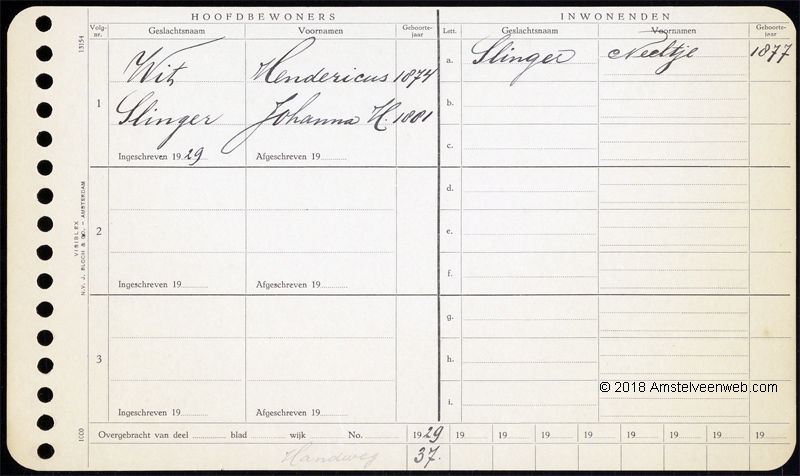 HOOFDBEWONERS INWONENDEN
Volg-nr. Geslachtsnaam Voornamen Geboorte-jaar Lett. Geslachtsnaam Voornamen Geboorte-jaar
13154
1 Wit Hendericus 1874 a. Slinger Neeltje 1877
b.
Slinger Johanna H. 1881
c.
Ingeschreven 1929 Afgeschreven 19
d.
2 e.
f.
Ingeschreven 19 Afgeschreven 19
VISIBLEX
N.V. J. BLOCH & CO. - AMSTERDAM
g.
3 h.
i.
Ingeschreven 19 Afgeschreven 19
© 2018 Amstelveenweb.com
1000
Overgebracht van deel blad wijk No. 1929 19 19 19 19 19 19 19 19
Handweg 37.